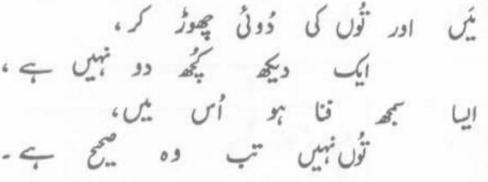 مَیں اور تُوں کی دُوئی چھوڑ کر،
ایک دیکھ کُچھ دو نہیں ہے،
ایسا سمجھ فنا ہو اُس میں،
تُوں نہیں تب وہ صحیح ہے۔